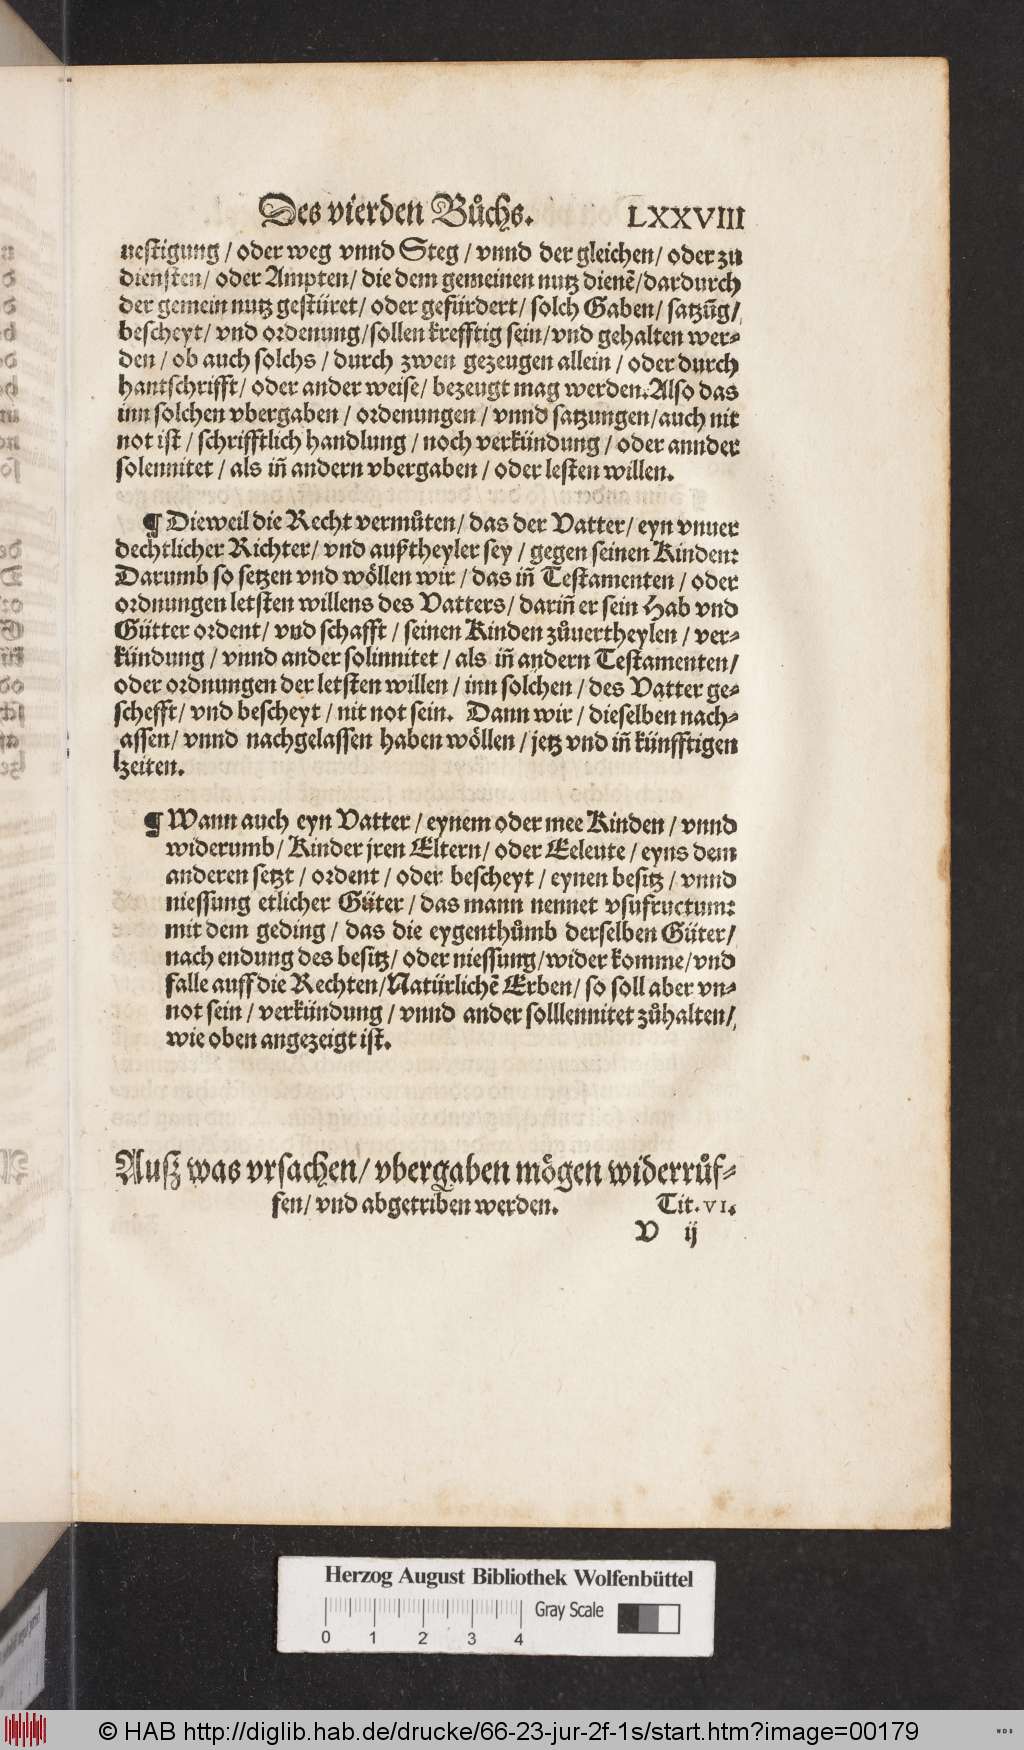 Des vierden Bůchs. LXXVIII
uestigung / oder weg vnnd Steg / vnnd der gleichen / oder zu
diensten / oder Ampten / die dem gemeinen nutz dienẽ / dardurch
der gemein nutz gestüret / oder gefürdert / solch Gaben / satzũg /
bescheyt / vnd ordenung / sollen krefftig sein / vnd gehalten wer⸗
den / ob auch solchs / durch zwen gezeugen allein / oder durch
hantschrifft / oder ander weise / bezeugt mag werden: Also das
inn solchen vbergaben / ordenungen / vnnd satzungen / auch nit
not ist / schrifftlich handlung / noch verkündung / oder annder
solennitet / als iñ andern vbergaben / oder lesten willen.
¶ Dieweil die Recht vermůten / das der Vatter / eyn vnuer
dechtlicher Richter / vnd außtheyler sey / gegen seinen Kinden:
Darumb so setzen vnd wöllen wir / das iñ Testamenten / oder
ordnungen letsten willens des Vatters / dariñ er sein Hab vnd
Gütter ordent / vnd schafft / seinen Kinden zůuertheylen / ver⸗
kündung / vnnd ander solinnitet / als iñ andern Testamenten /
oder ordnungen der letsten willen / inn solchen / des Vatter ge⸗
schefft / vnd bescheyt / nit not sein. Dann wir / dieselben nach⸗
assen / vnnd nachgelassen haben wöllen / jetz vnd iñ künfftigen
lzeiten.
¶ Wann auch eyn Vatter / eynem oder mee Kinden / vnnd
widerumb / Kinder jren Eltern / oder Eeleute / eyns dem
anderen setzt / ordent / oder bescheyt / eynen besitz / vnnd
niessung etlicher Güter / das mann nennet vsufructum:
mit dem geding / das die eygenthůmb derselben Güter /
nach endung des besitz / oder niessung / wider komme / vnd
falle auff die Rechten / Natürlichẽ Erben / so soll aber vn⸗
not sein / verkündung / vnnd ander solllennitet zůhalten /
wie oben angezeigt ist.
Ausz was vrsachen / vbergaben mögen widerrůf⸗
fen / vnd abgetriben werden. Tit. VI.
V ij
Herzog August Bibliothek Wolfenbüttel
Gray Scale
0 1 2 3 4
© HAB http://diglib.hab.de/drucke/66-23-jur-2f-1s/start.htm?image=00179